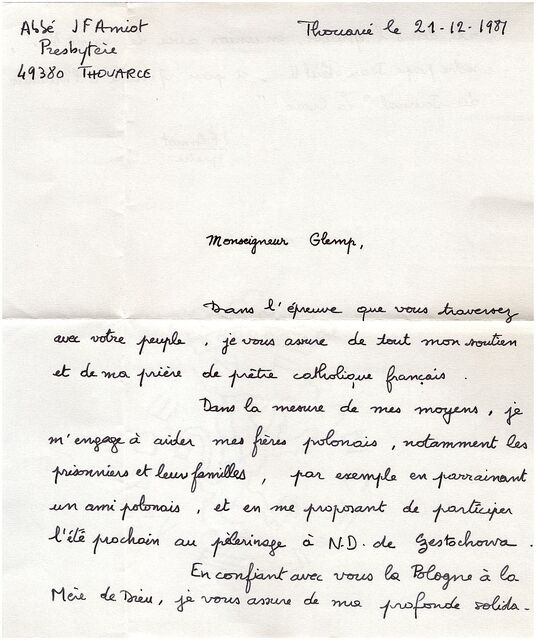 Abbé J F Amiot
Presbytère
49380 THOUARCE
Thouarcé le 21-12-1981
Monseigneur Glemp,
Dans l'épreuve que vous traversez
avec votre peuple, je vous assure de tout mon soutien
et de ma prière de prêtre catholique français.
Dans la mesure de mes moyens, je
m'engage à aider mes frères polonais, notamment les
prisonniers et leur familles, par exemple en parrainant
un ami polonais, et en me proposant de participer
l'été prochain au pèlerinage à N.D. de Czestochowa.
En confiant avec vous la Pologne à la
Mère de Dieu, je vous assure de ma profonde solida-